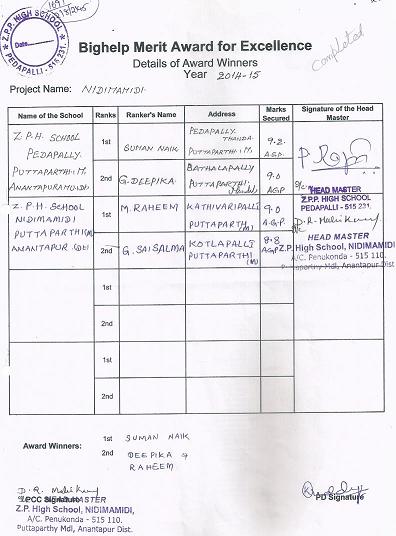 Z.P.P. HIGH SCHOOL
Date
PEDAPALLI - 515 231.
Bighelp Merit Award for Excellence
Details of Award Winners
Year 2014-15
completed
Project Name: NIDIMAMIDI
Name of the School Ranks Ranker's Name Address Marks Secured Signature of the Head Master
Z.P.H. SCHOOL
PEDAPALLY.
PUTTAPARTHI.M,
1st SUMAN NAIK PEDAPALLY. THANDA. PUTTAPARTHI.M. 9.2
2nd G. DEEPIKA. BATHALAPALLY PUTTAPARTHI 9.0 AGP
HEAD MASTER
Z.P.P. HIGH SCHOOL
PEDAPALLI - 515 231
Z.P.H. SCHOOL
NIDIMAMIDI
PUTTAPARTHI(M)
1st M. RAHEEM KATHIVARIPALLI PUTTAPARTHI (M) 9.0 A.G.P.
2nd G. SAI SALMA KOTLAPALLI PUTTAPARTHI (M) 8.8 AGP
HEAD MASTER
Z.P. High School, NIDIMAMIDI
A/C. Penukonda - 515 110.
Puttaparthy Mdl, Anantapur Dist
1st
2nd
1st
2nd
Award Winners:
1st SUMAN NAIK
2nd DEEPIKA &
RAHEEM
CC Signature
HEAD MASTER
Z.P. High School, NIDIMAMIDI,
A/C. Penukonda - 515 110.
Puttaparthy Mdl, Anantapur Dist.
PD Signature